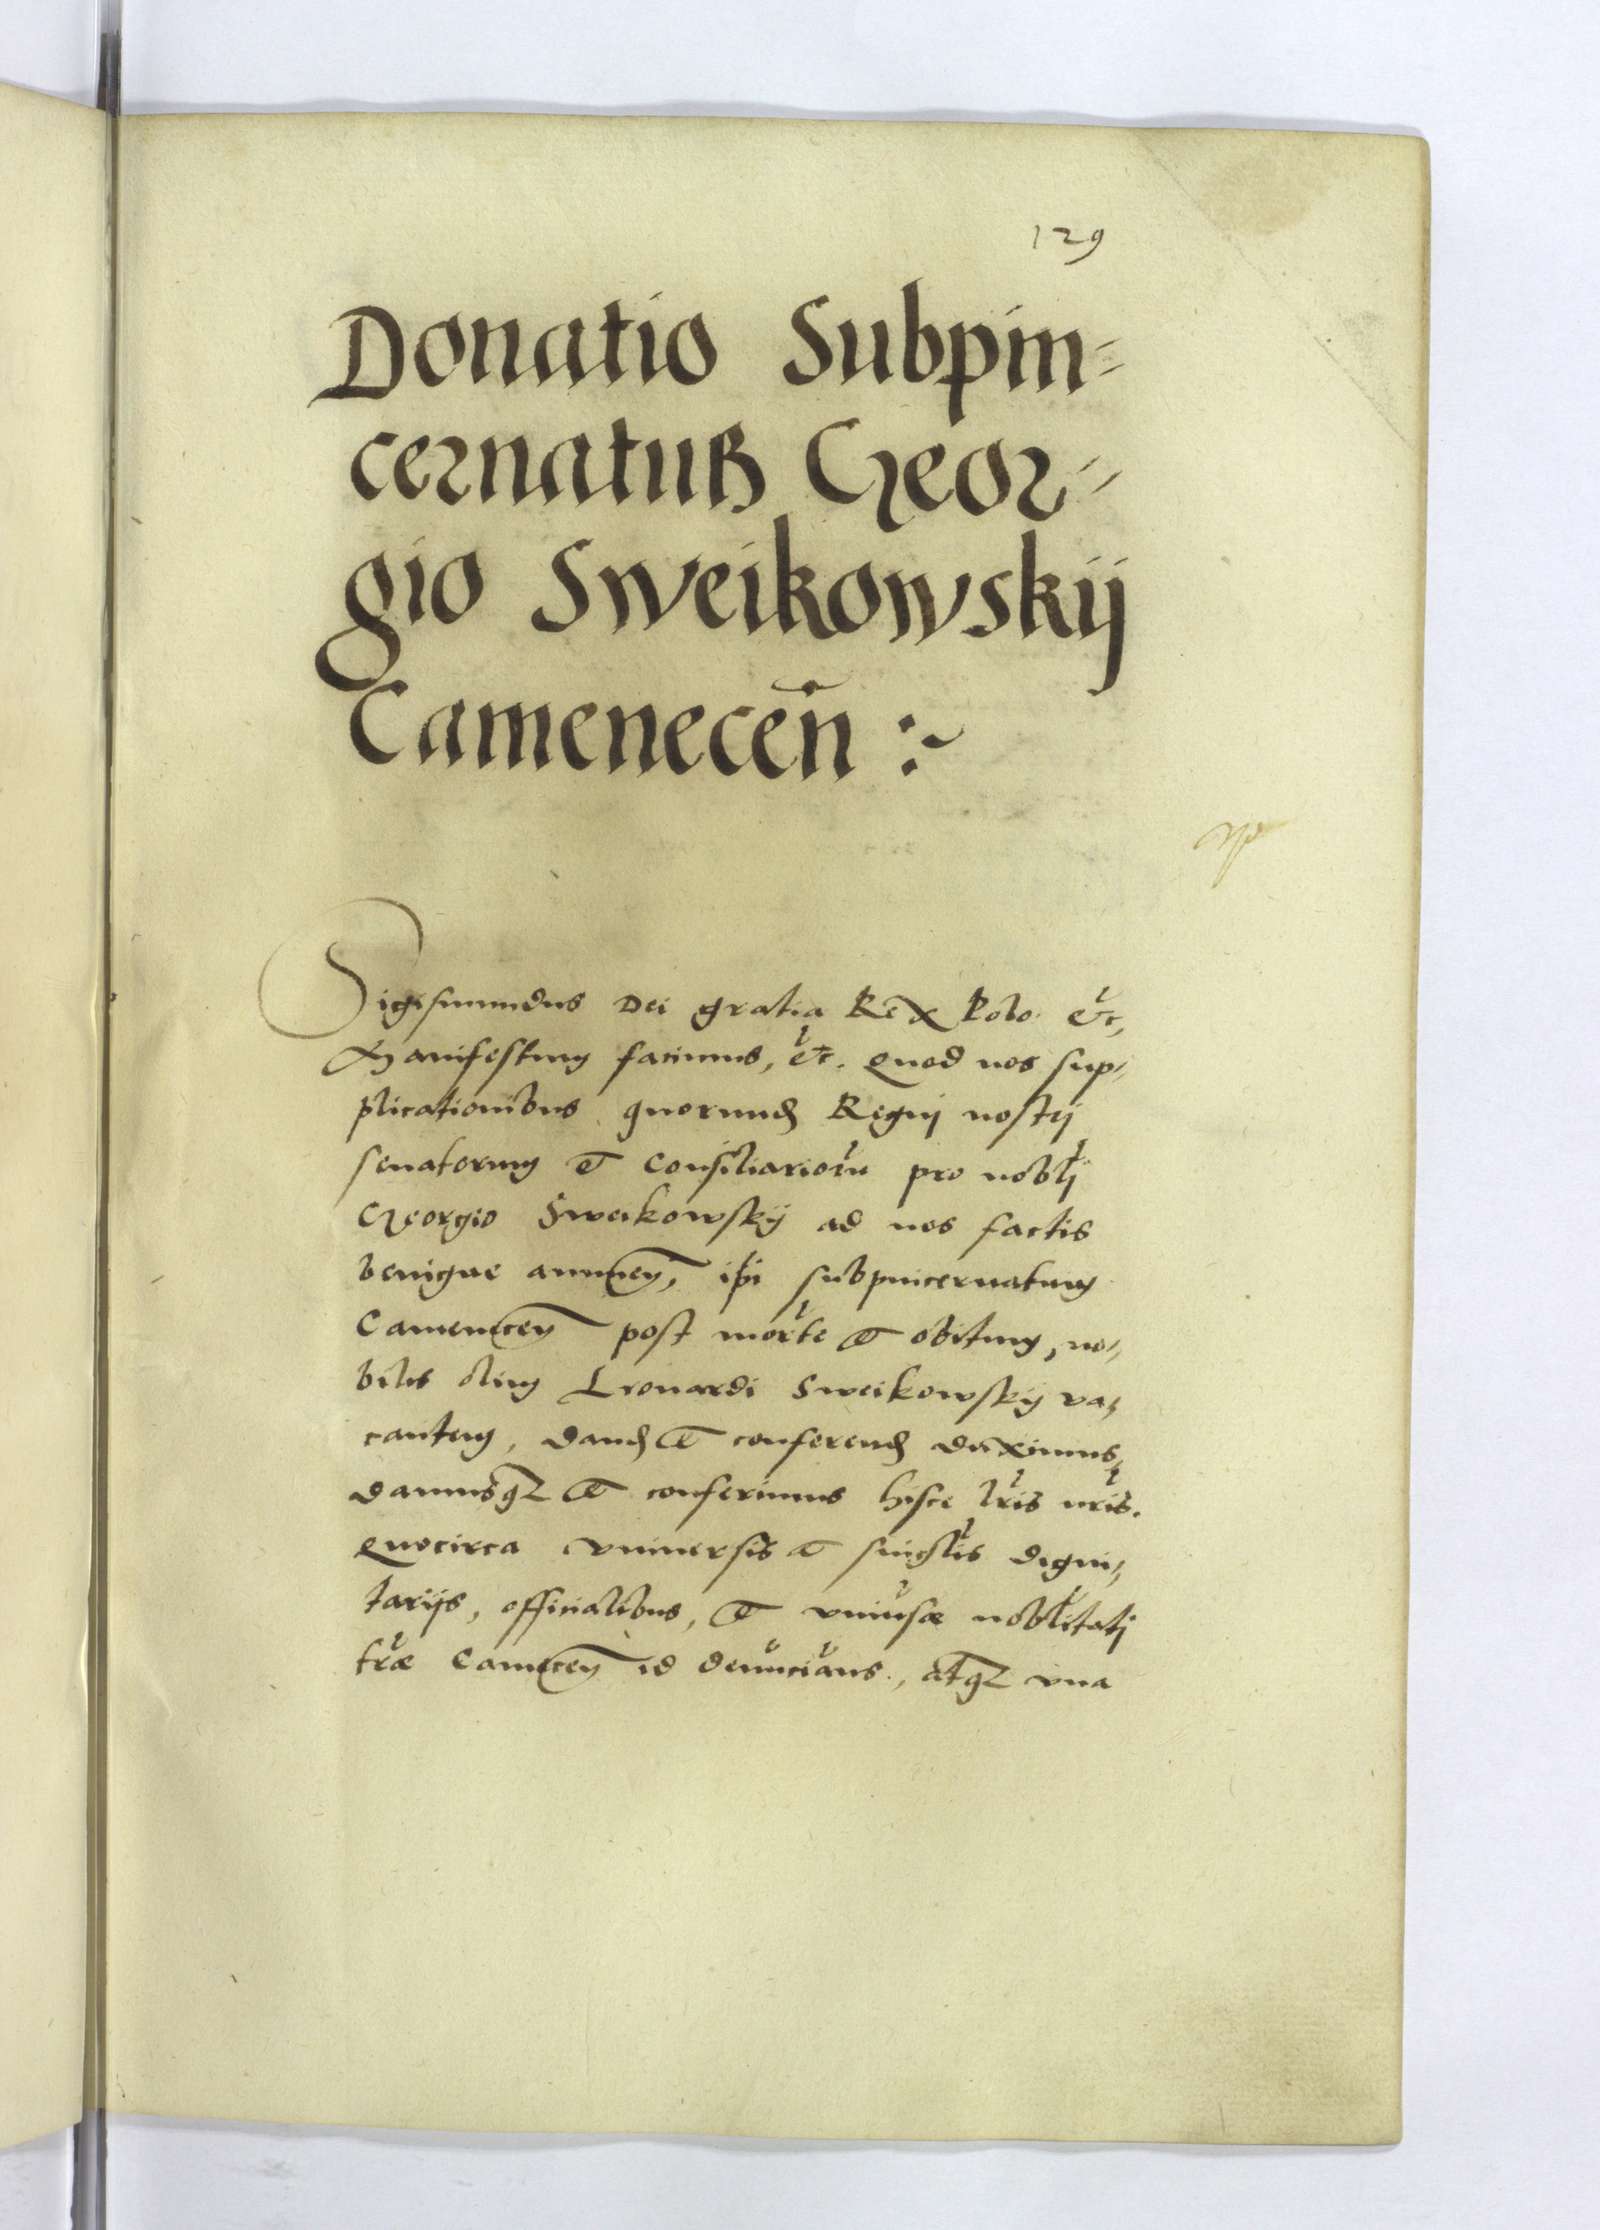 129
Donatio Subpin=
cernatuß Geor=
gio Sweikowskij
Camenecen̄ :~
Sigismundus Dei gratia Rex Polo. etc,
Manifestum facimus, etc. quod nos sup=
plicationibus quorund Regnj nostrj
senatorum et Consiliarioru pro noblj
Georgio Sweikowskij ad nos factis
benigne annuen, ipi subpincernatum
Camenecen post morte et obitum, no=
bilis olim Leonardi Sweikowskij va=
cantem, dand et conferend duximus,
damusq et conferimus hisce lris nris.
Quocirca vniuersis et singlis digni=
tarijs, officialibus, et vniusæ noblitatj
træ Camecen id denuncians, atq vna